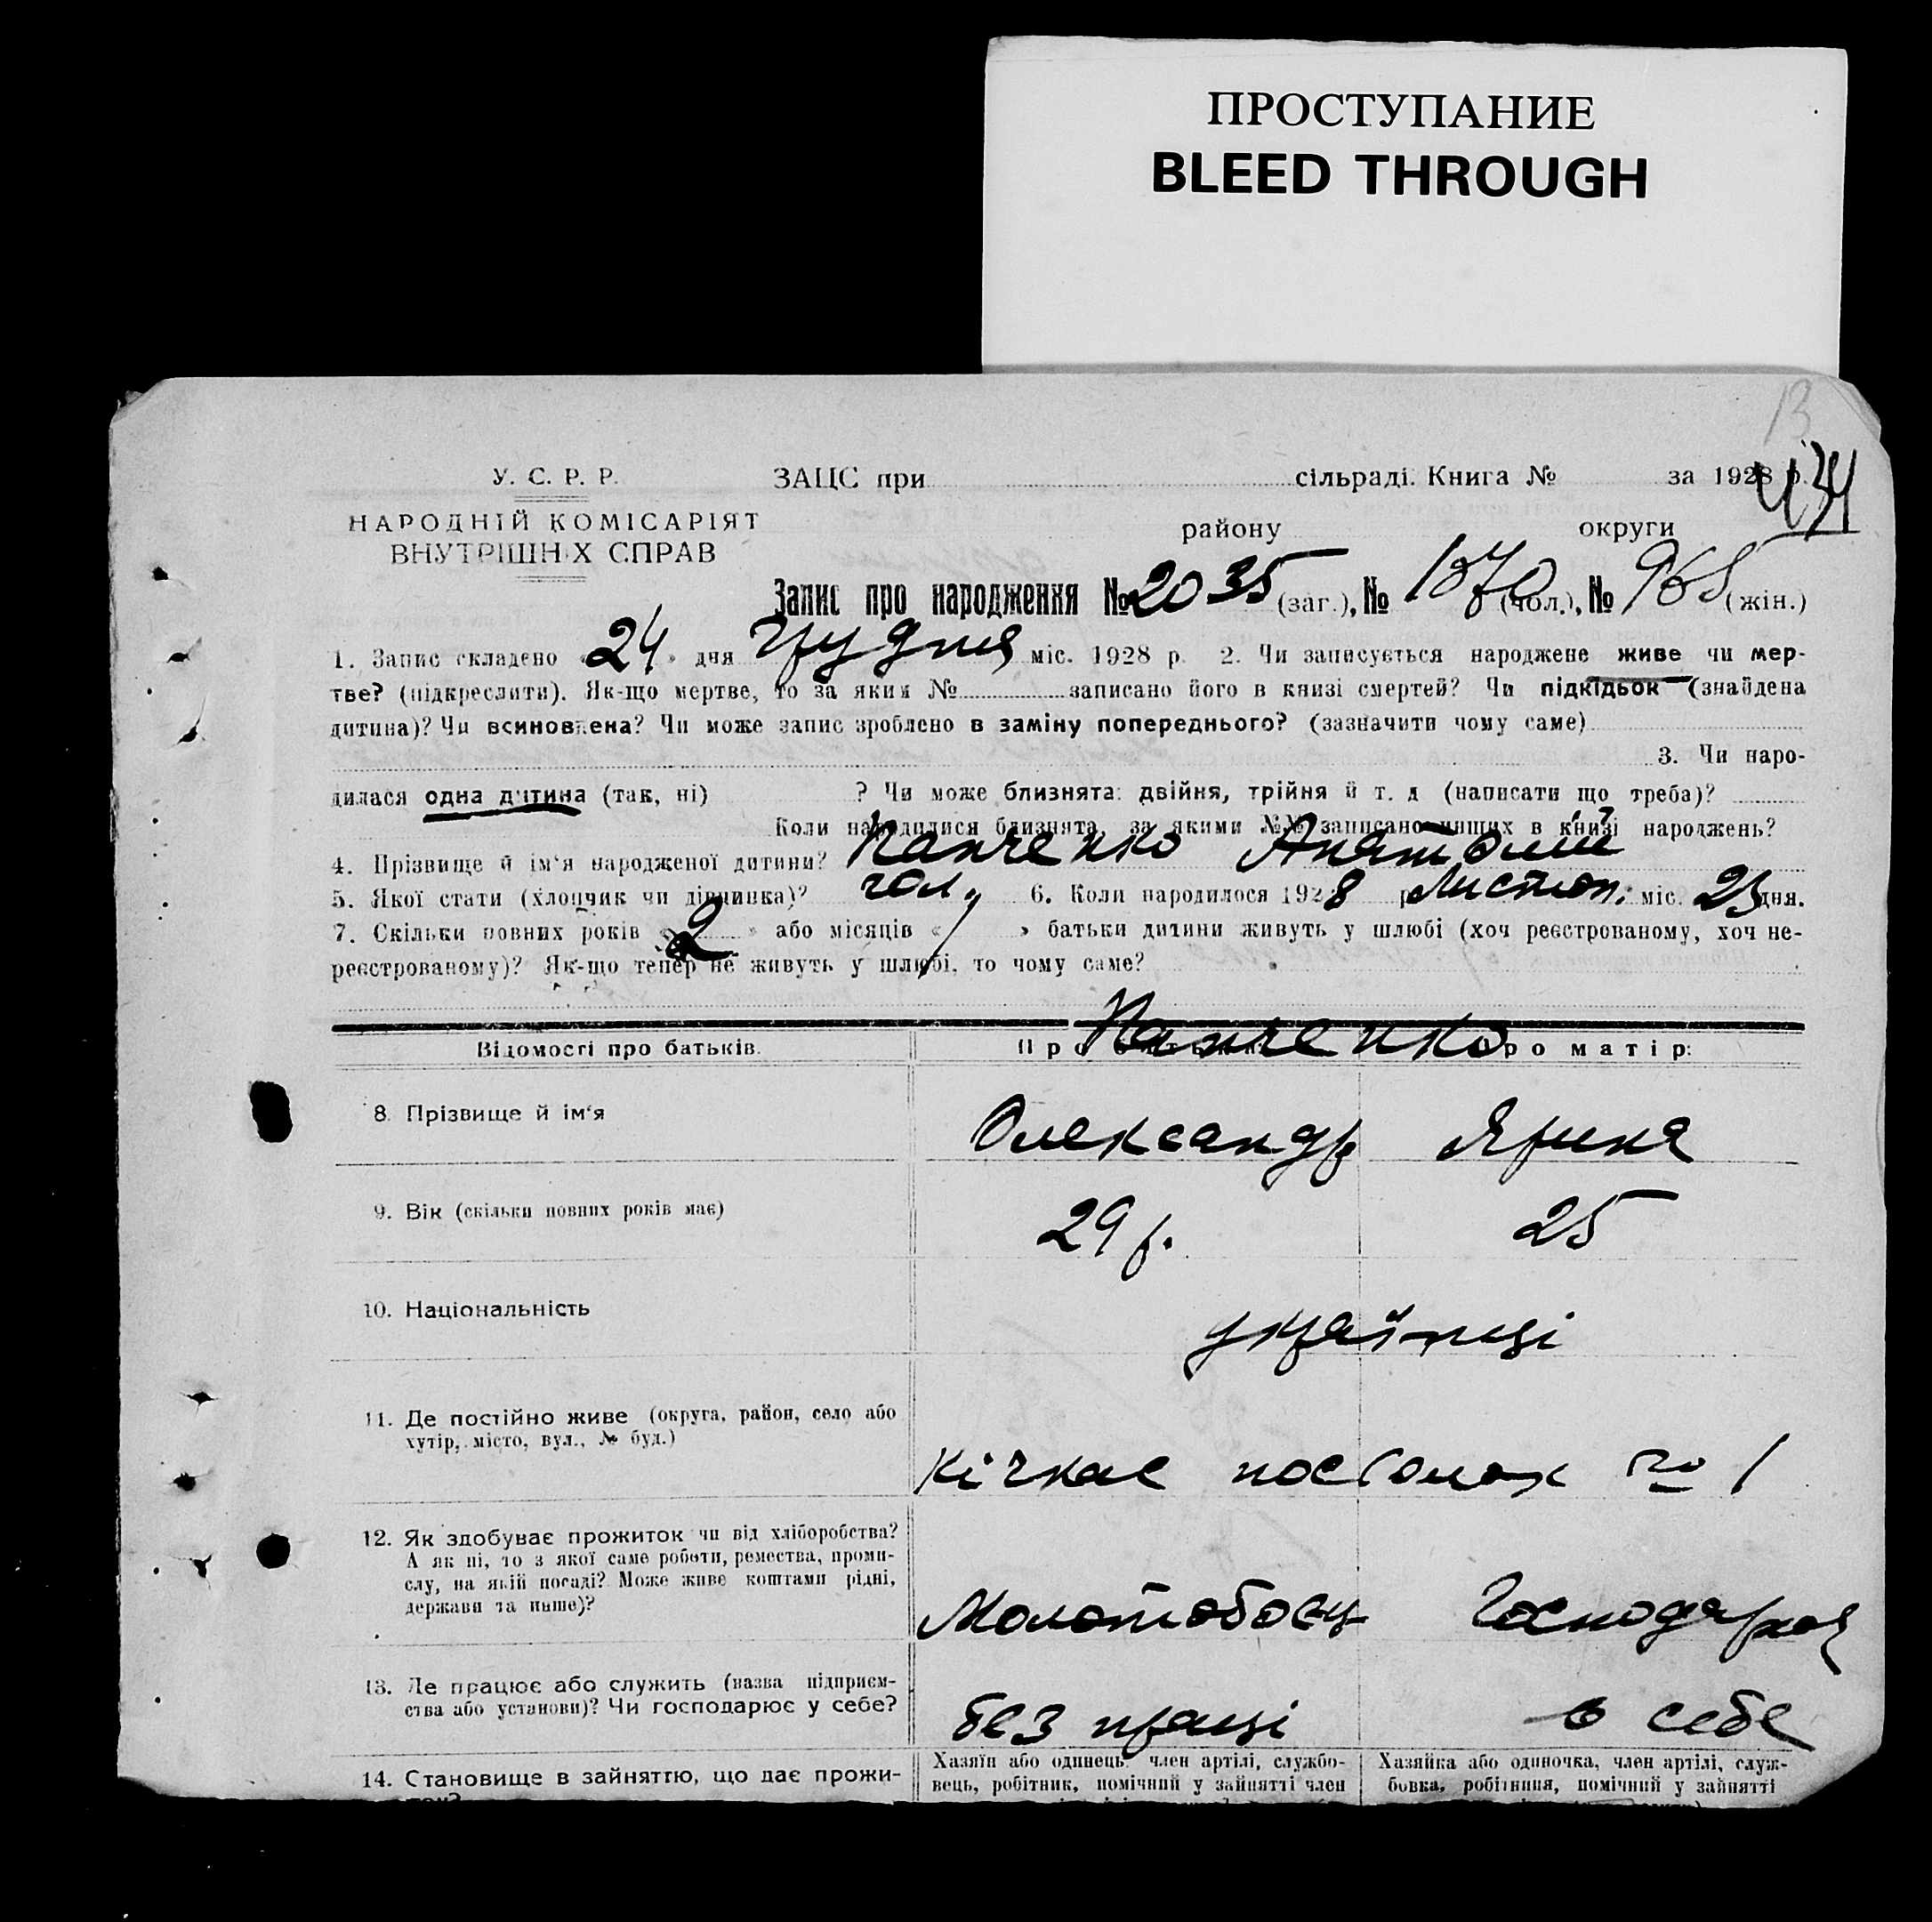 ПРОСТУПАНИЕ
BLEED THROUGH
13
434
У. С. Р. Р.
ЗАЦС при сільраді. Книга № за 1928 р.
НАРОДНІЙ КОМІСАРІЯТ
ВНУТРІШНІХ СПРАВ
району округи
Запис про народження № 2035 (заг.), № 1070 (чол.), № 965 (жін.)
1. Запис складено «24» дня грудня міс. 1928 р. 2. Чи записується народжене живе чи мер-
тве? (підкреслити). Як-що мертве, то за яким № записано його в книзі смертей? Чи підкідьок (знайдена
дитина)? Чи всиновлена? Чи може запис зроблено в заміну попереднього? (зазначити чому саме)
3. Чи наро-
дилася одна дитина (так, ні) ? Чи може близнята: двійня, трійня й т. д (написати що треба)?
Коли народилися близнята, за якими №№ записано инших в книзі народжень?
4. Прізвище й ім'я народженої дитини? Панченко Анатолій
5. Якої стати (хлопчик чи дівчинка)? чол. 6. Коли народилося 1928 р Листоп. міс. 23 дня.
7. Скільки повних років «2» або місяців « » батьки дитини живуть у шлюбі (хоч реєстрованому, хоч не-
реєстрованому)? Як-що тепер не живуть у шлюбі, то чому саме?
Панченко
Відомості про батьків. Про батька: Про матір:
8. Прізвище й ім'я Олександр Ярина
9. Вік (скільки повних років має) 29 р. 25
10. Національність українці
11. Де постійно живе (округа, район, село або
хутір, місто, вул., № буд.)
Кічкас посьолок № 1
12. Як здобуває прожиток чи від хліборобства?
А як ні, то з якої саме роботи, ремества, проми-
слу, на якій посаді? Може живе коштами рідні,
держави та инше)?
Молотобоєць Господарює
13. Де працює або служить (назва підприєм-
ства або установи)? Чи господарює у себе?
без праці в себе
14. Становище в зайняттю, що дає прожи-
ток?
Хазяїн або одинець, член артілі, службо-
вець, робітник, помічний у зайнятті член
Хазяйка або одиночка, член артілі, служ-
бовка, робітниця, помічний у зайнятті